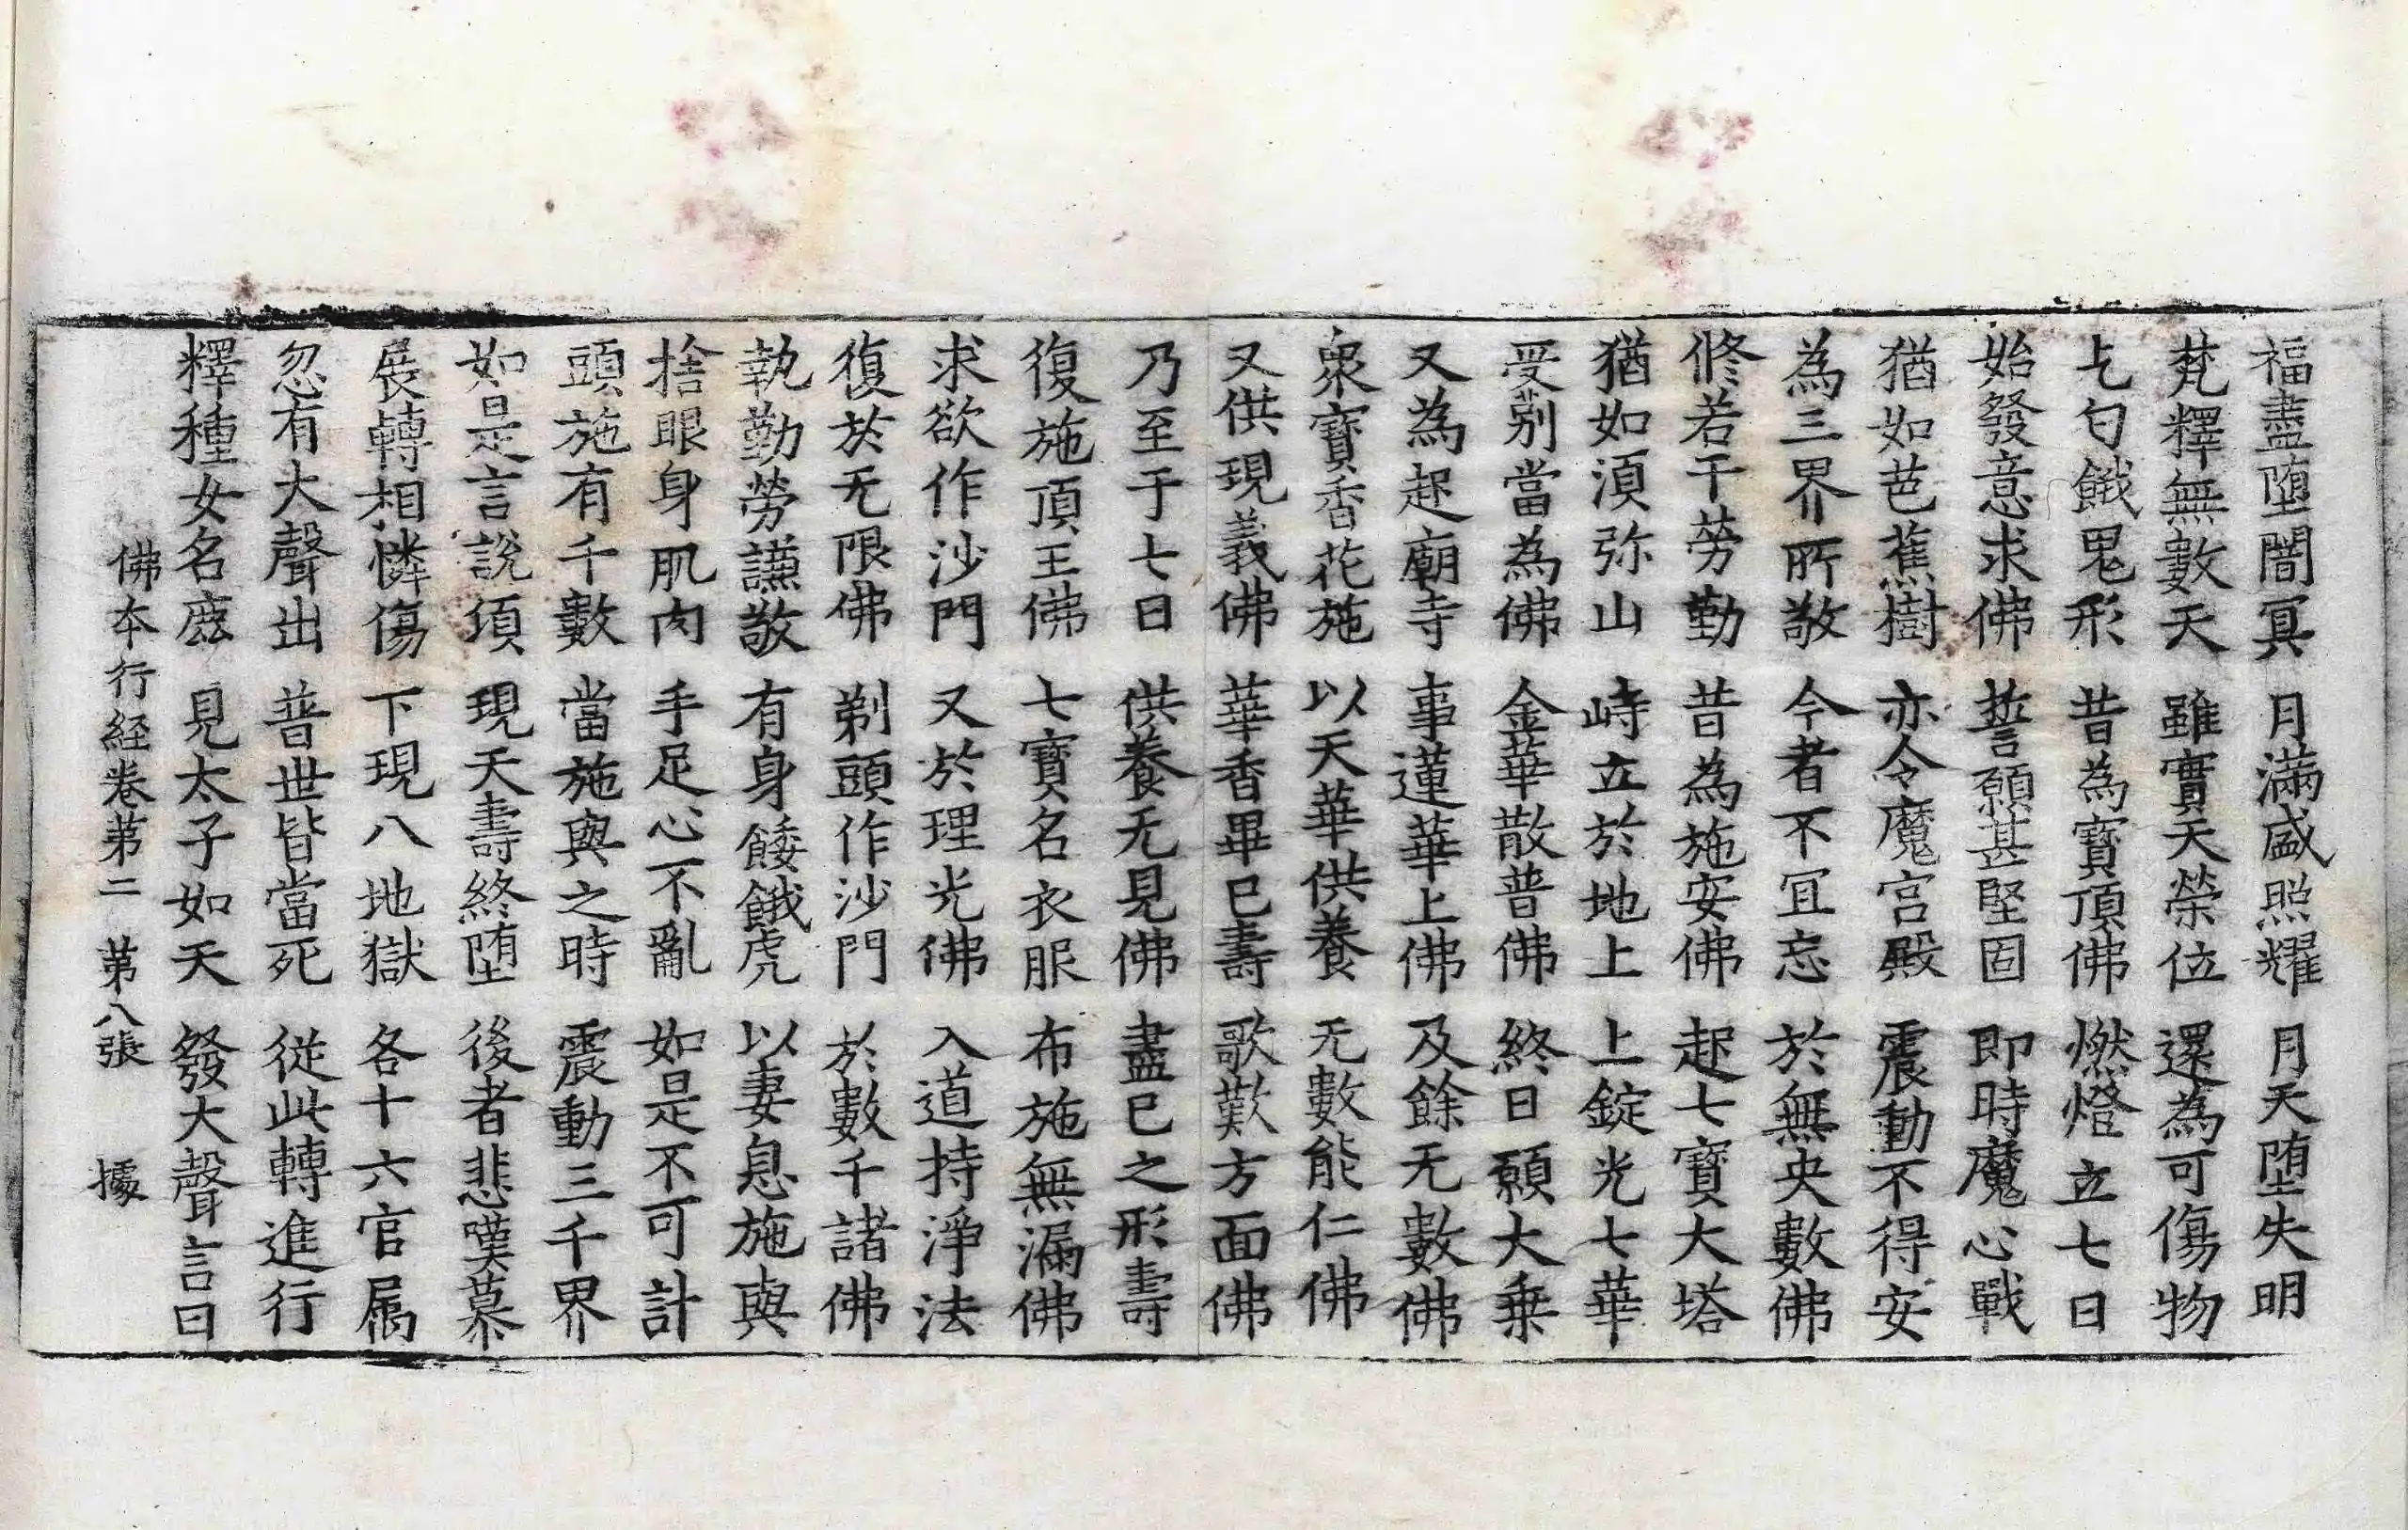 福盡墮闇冥 月滿盛照耀 月天墮失明
梵釋無數天 雖實天榮位 還為可傷物
乞匂餓鬼形 昔為寶頂佛 燃燈立七日
始發意求佛 誓願甚堅固 即時魔心戰
猶如芭蕉樹 亦令魔宮殿 震動不得安
為三界所敬 今者不冝忘 於無央數佛
修若干勞勤 昔為施安佛 起七寶大塔
猶如湏弥山 峙立於地上 上錠光七華
受莂當為佛 金華散普佛 終日願大乗
又為起廟寺 事蓮華上佛 及餘无數佛
衆寶香花施 以天華供養 无數能仁佛
又供現義佛 華香畢巳壽 歌歎方面佛
乃至于七日 供養无見佛 盡巳之形壽
復施頂王佛 七寶名衣服 布施無漏佛
求欲作沙門 又於理光佛 入道持淨法
復於无限佛 剃頭作沙門 於數千諸佛
執勤勞謙敬 有身餧餓虎 以妻息施與
捨眼身肌肉 手足心不亂 如是不可計
頭施有千數 當施與之時 震動三千界
如是言說頃 現天壽終墮 後者悲嘆慕
展轉相憐傷 下現八地獄 各十六官属
忽有大聲出 普世皆當死 從此轉進行
釋種女名鹿 見太子如天 發大聲言曰
佛本行経卷第二 第八張 據